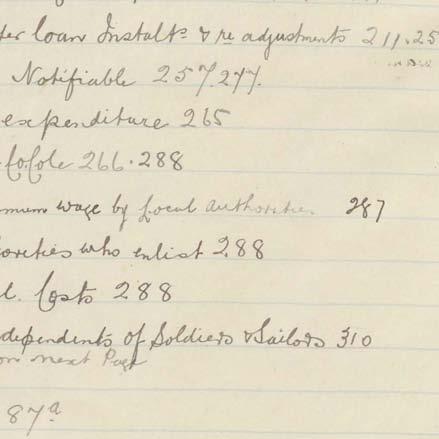 der loan Instalts & re adjustments 211.25
Notifiable 257.277.
expenditure 265
Co/Cole 266.288
mum wage by Local Authorities 287
orities who enlist 288
l. Costs 288
dependents of Soldiers & Sailors 310
on next Page
87a